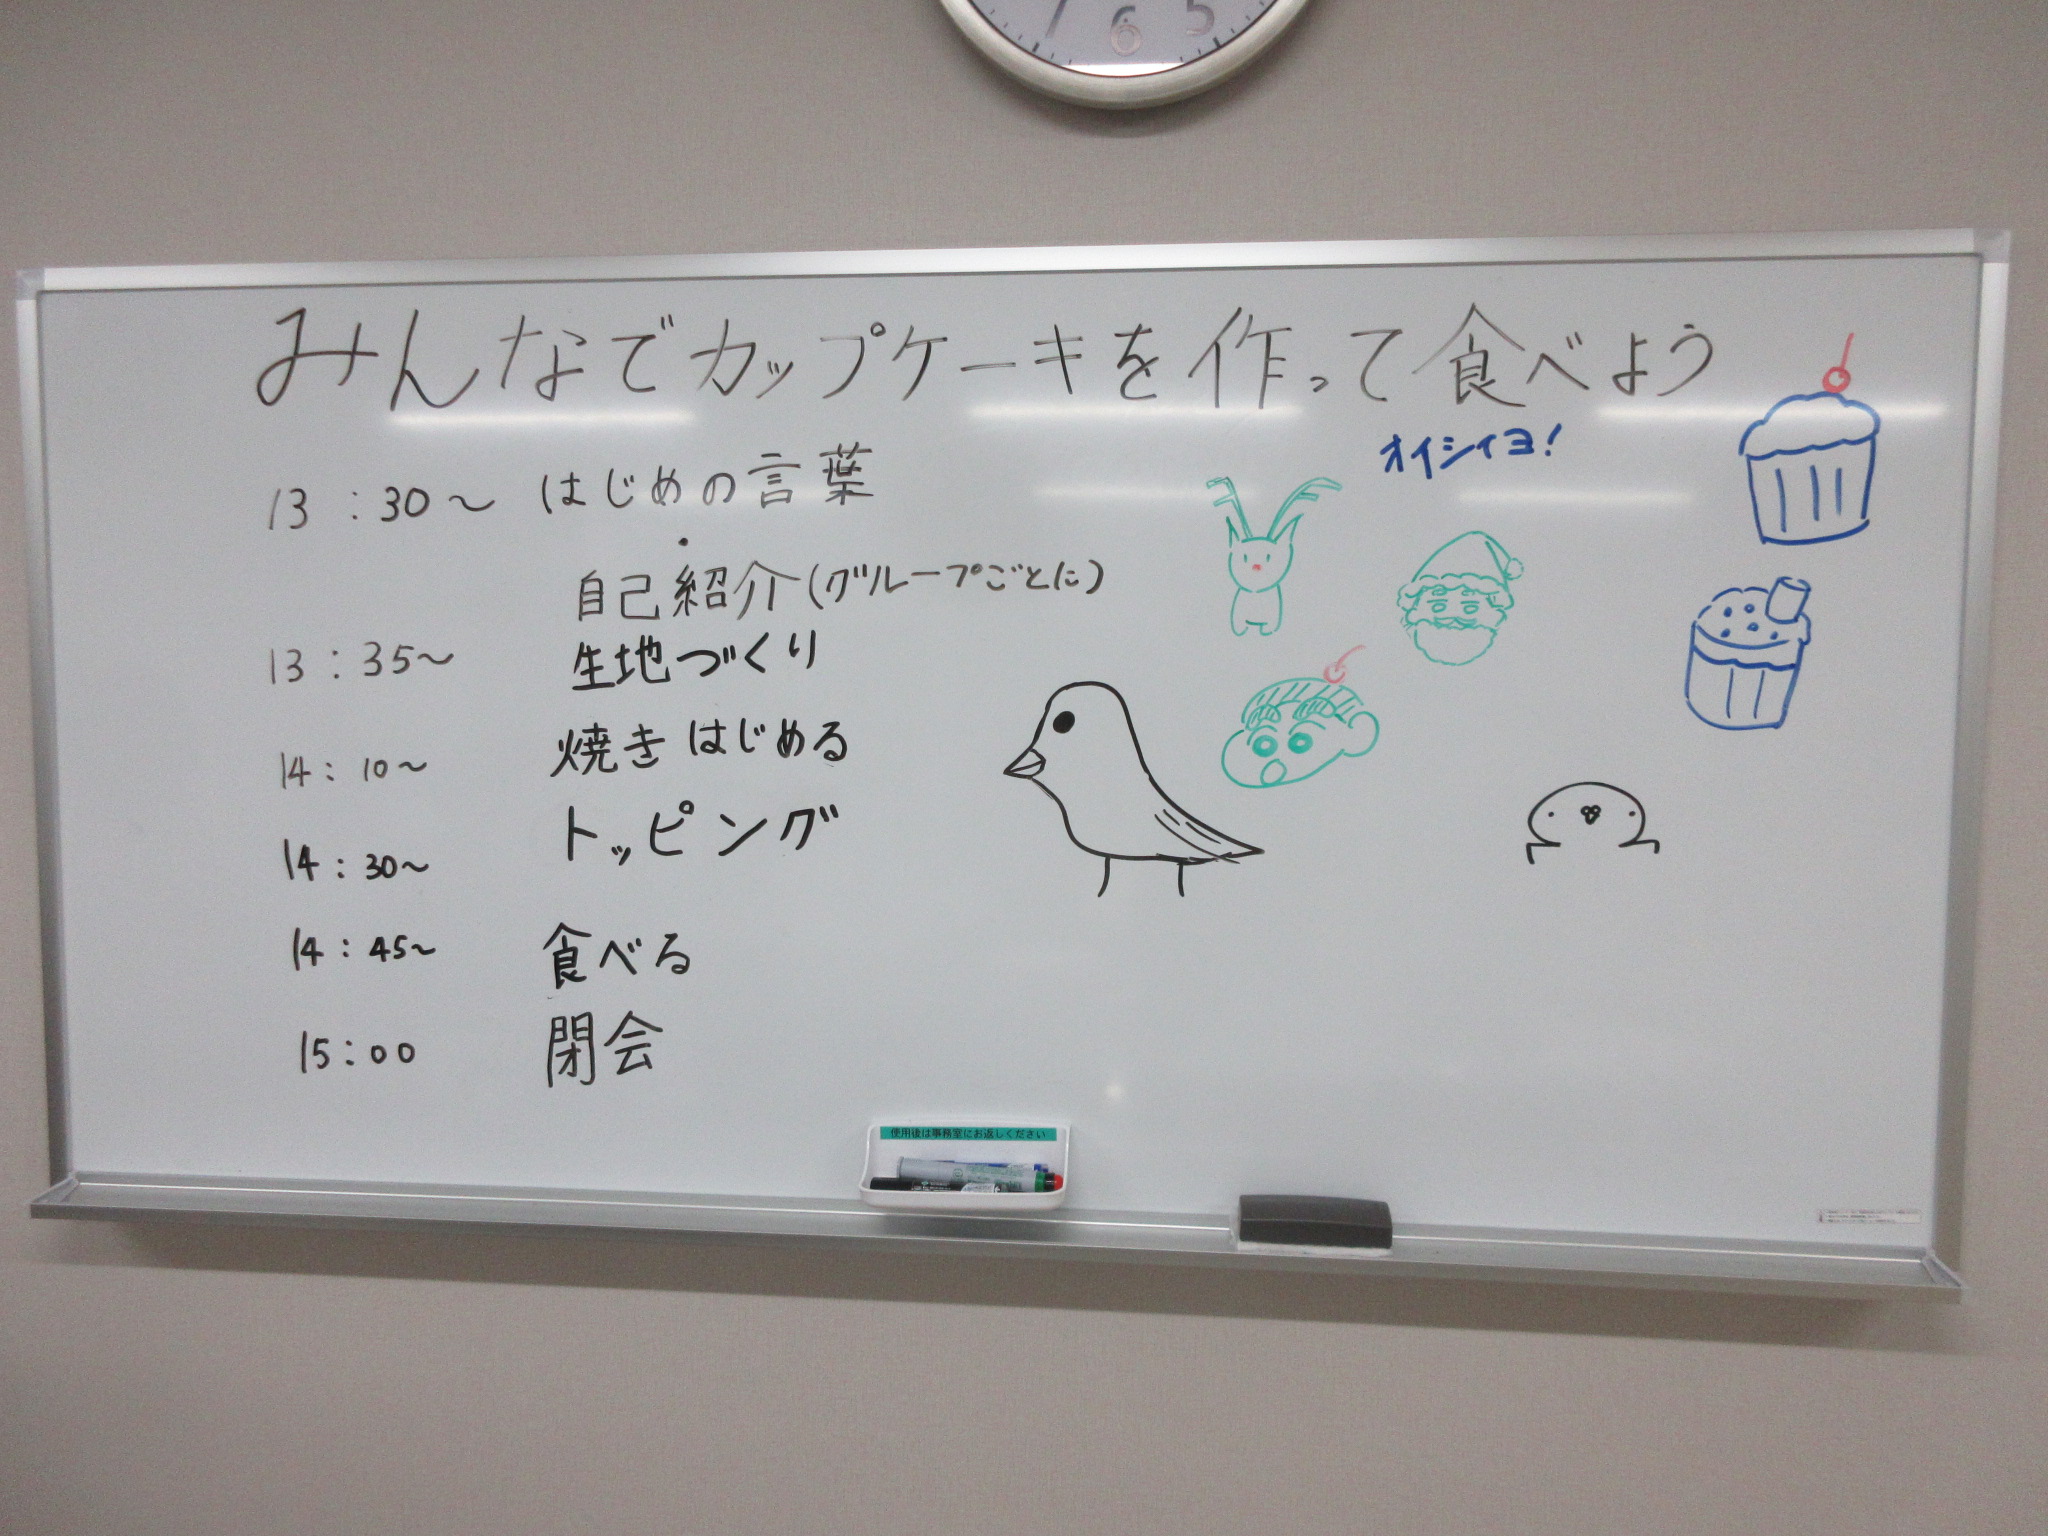 7 6 5
みんなでカップケーキを作って食べよう
オイシイヨ!
13:30～ はじめの言葉
・自己紹介(グループごとに)
13:35～ 生地づくり
14:10～ 焼きはじめる
14:30～ トッピング
14:45～ 食べる
15:00 閉会
使用後は事務室にお返しください